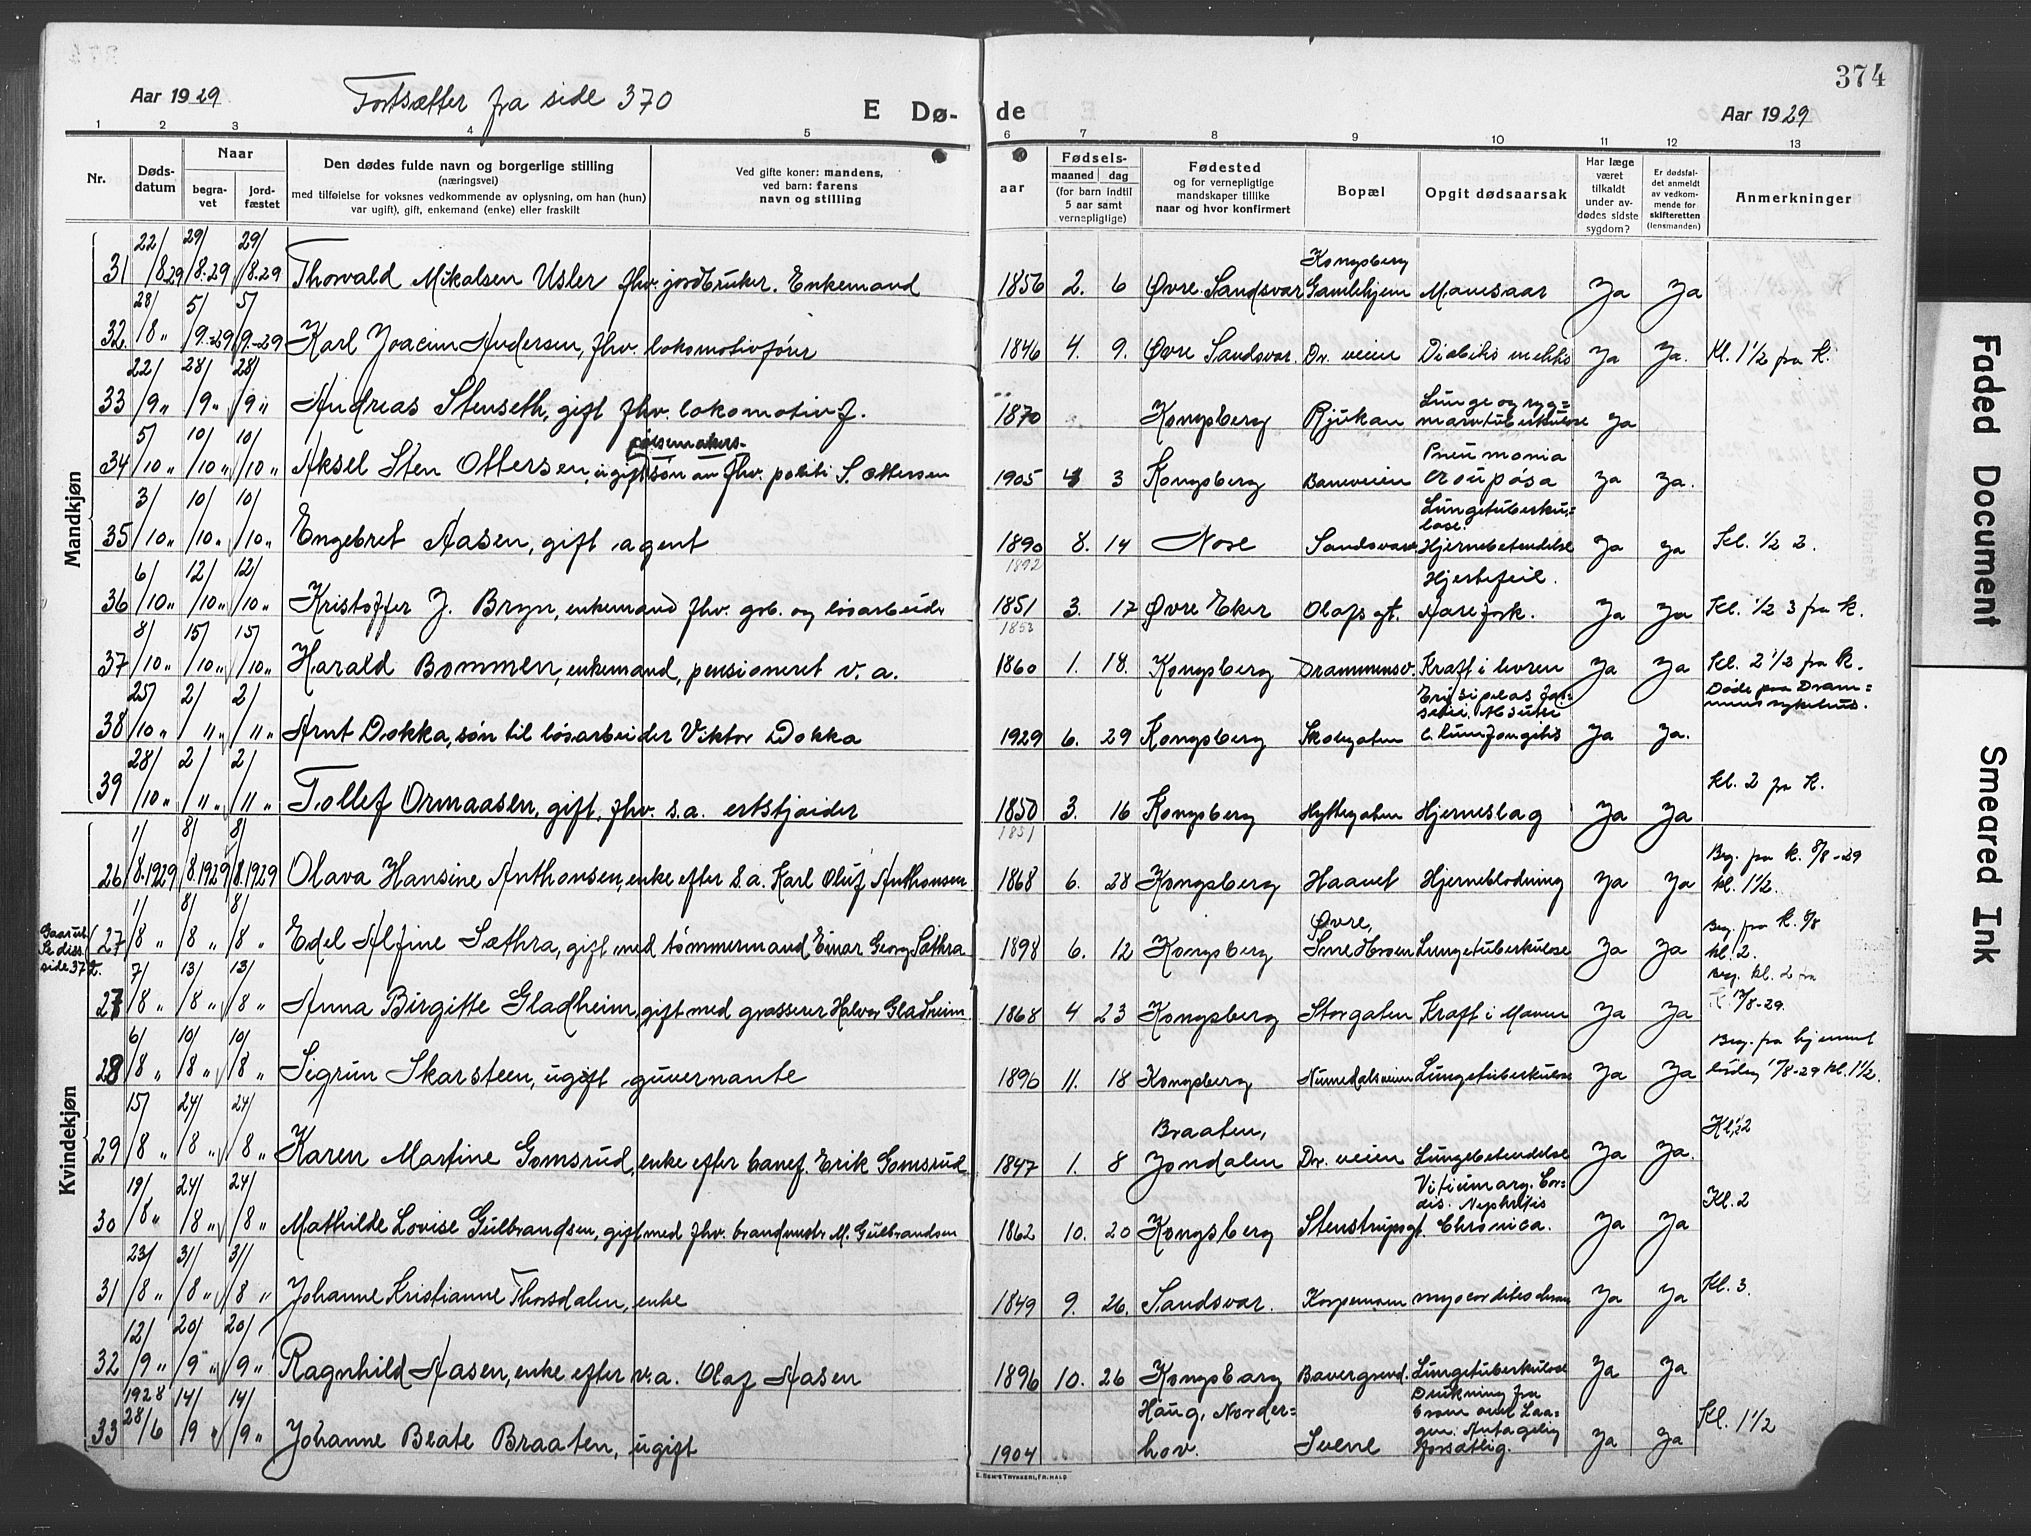 374
Aar 1929 Fortsætter fra side 370 E Dø- de Aar 1929
1 2 3 4 5 6 7 8 9 10 11 12 13
Nr. Dødsdatum Naar begravet jordfæstet
Den dødes fulde navn og borgerlige stilling
(næringsvei)
med tilføielse for voksnes vedkommende av oplysning, om han (hun)
var ugift), gift, enkemand (enke) eller fraskilt
Ved gifte koner: mandens,
ved barn: farens
navn og stilling
aar
Fødsels-
maaned dag
(for barn indtil
5 aar samt
vernepligtige)
Fødested
og for vernepligtige
mandskaper tillike
naar og hvor konfirmert
Bopæl
Opgit dødsaarsak
Har læge
været
tilkaldt
under av-
dødes sidste
sygdom?
Er dødsfal-
det anmeldt
av vedkom-
mende for
skifteretten
(lensmanden)
Anmerkninger
Mandkjøn
31 22/8 29 29/8 29 29/8 29 Thorvald Mikalsen Usler fhv. jordbruker. Enkemand 1856 2. 6 Øvre Sandsvar Kongsberg Gamlehjem Mavesaar Ja Ja
32 28/8 " 5/9-29 5/9-29 Karl Joacim Andersen, fhv. lokomotivfører 1846 4. 9. Øvre Sandsvar. Dr. veien Ja Ja. Kl. 1 1/2 fra K.
33 22/9 " 28/9 " 28/9 " Andreas Stenseth, gift fhv. lokomotivf. 1870 Kongsberg Rjukan Lunge og ryg= marvtuberkulose Ja
34 5/10 " 10/10 " 10/10 " Aksel Sten Ottersen, ugift pølsemaker, søn av fhv. politi S. Ottersen 1905 4 3 Kongsberg Baneveien Pneumonia croupøsa Ja Ja.
35 3/10 " 10/10 " 10/10 " Engebret Aasen, gift agent 1890 8. 14 Nore Sandsvarv Lungetuberku= lose. Hjernebetendelse Ja Ja Kl. 1/2 2.
1892
36 6/10 " 12/10 " 12/10 " Kristoffer J. Bryn, enkemand fhv. grb. og løsarbeider 1851 3. 17 Øvre Eker Olafs gt. Hjertefeil. Aarefork. Ja Ja Kl. 1/2 3 fra K.
1853
37 8/10 " 15/10 " 15/10 " Harald Bommen, enkemand, pensioneret v. a. 1860 1. 18. Kongsberg Drammensv. Kræft i levren Ja Ja Kl. 2 1/2 fra K.
38 25/10 " 2/11 " 2/11 " Arnt Dokka, søn til løsarbeider Viktor Dokka 1929 6. 29 Kongsberg Skolegaten Ja Ja. Døde paa Dram= mens sykehus.
39 28/10 " 2/11 " 2/11 " Tollef Ormaasen, gift, fhv. s.a. ertskjører 1850 3. 16 Kongsberg Hyttegaten Hjerneslag Ja Ja Kl. 2 fra K.
1851
Kvindekjøn
26 1/8.1929 8/8.1929 8/8.1929 Olava Hansine Anthonsen, enke efter s.a. Karl Oluf Anthonsen 1868 6. 28 Kongsberg Haavet Hjerneblødning Ja Ja Beg. fra K. 8/8-29 kl. 1 1/2.
Gaar ut. Se dies side 372. 27 1/8 " 8/8 " 8/8 " Edel Alfine Sæthra, gift med tømmermand Einar Georg Sæthra 1898 6. 12 Kongsberg Øvre, Smedbroen Lungetuberkulose Ja Ja Beg. fra K. 8/8 kl. 2.
27 7/8 " 13/8 " 13/8 " Anna Birgitte Gladheim, gift med grosserer Halvor Gladheim 1868 4 23 Kongsberg Storgaten Kræft i Maven Ja Ja Beg. kl. 2 fra K 13/8-29.
28 6/8 " 10/8 " 10/8 " Sigrun Skarsteen, ugift guvernante 1896 11. 18 Kongsberg Numedalsveien Lungetuberkulose Ja Ja Beg. fra hjemmet lørdag 10/8-29 kl. 1 1/2.
29 15/8 " 24/8 " 24/8 " Karen Martine Gomsrud, enke efter banef. Erik Gomsrud 1847 1. 8 Braaten, Jondalen Dr. veien Lungebetendelse Ja Ja.
30 19/8 " 24/8 " 24/8 " Mathilde Lovise Gulbrandsen, gift med fhv. brandmstr. M. Gulbrandsen 1862 10. 20 Kongsberg Stenstrupsgt. Vitium arg. Cor= dis. Nephritis Chronica. Ja Ja Kl. 2
31 23/8 " 31/8 " 31/8 " Johanne Kristianne Thorsdalen, enke 1849 9. 26. Sandsvar. Korpemoen Ja Ja Kl. 3.
32 12/9 " 20/9 " 20/9 " Ragnhild Aasen, enke efter v.a. Olaf Aasen 1896 10. 26 Kongsberg Bævergrend. Lungetuberkulose Ja Ja
33 1928 28/6 14/9 " 14/9 " Johanne Beate Braaten, ugift 1904 Haug, Norder= hov. Svene Drukning fra broen over Laa= gen. Antagelig forsætlig. Ja Ja Kl. 1 1/2
Faded Document
Smeared Ink